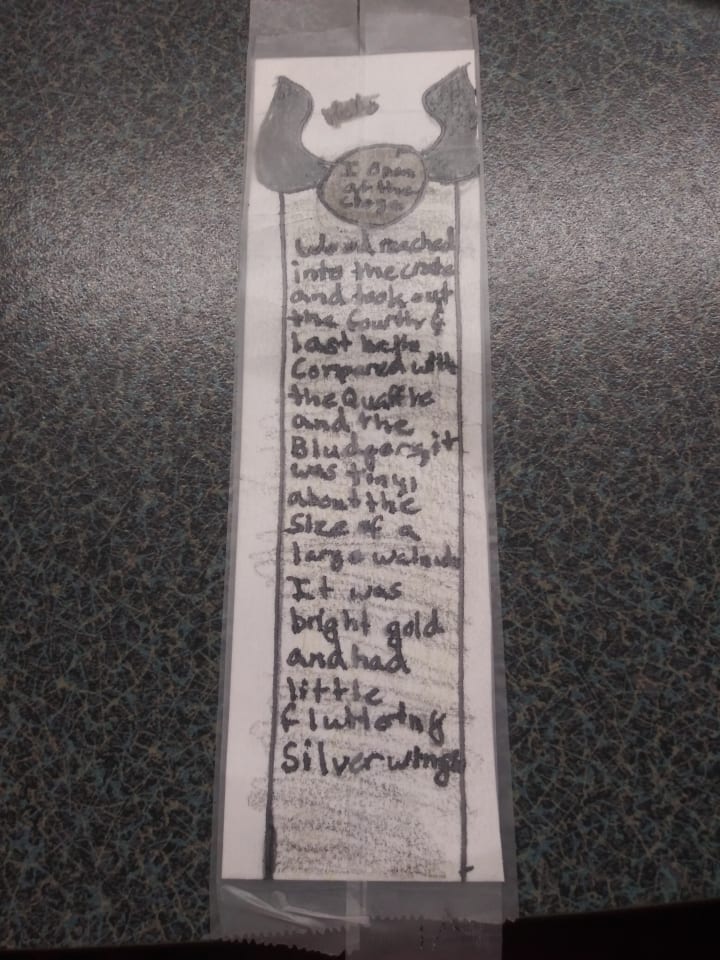 I Open
at the
Close
Wood reached
into the crate
and took out
the fourth &
last ball.
Compared with
the Quaffle
and the
Bludgers, it
was tiny,
about the
size of a
large walnut.
It was
bright gold
and had
little
fluttering
silver wings